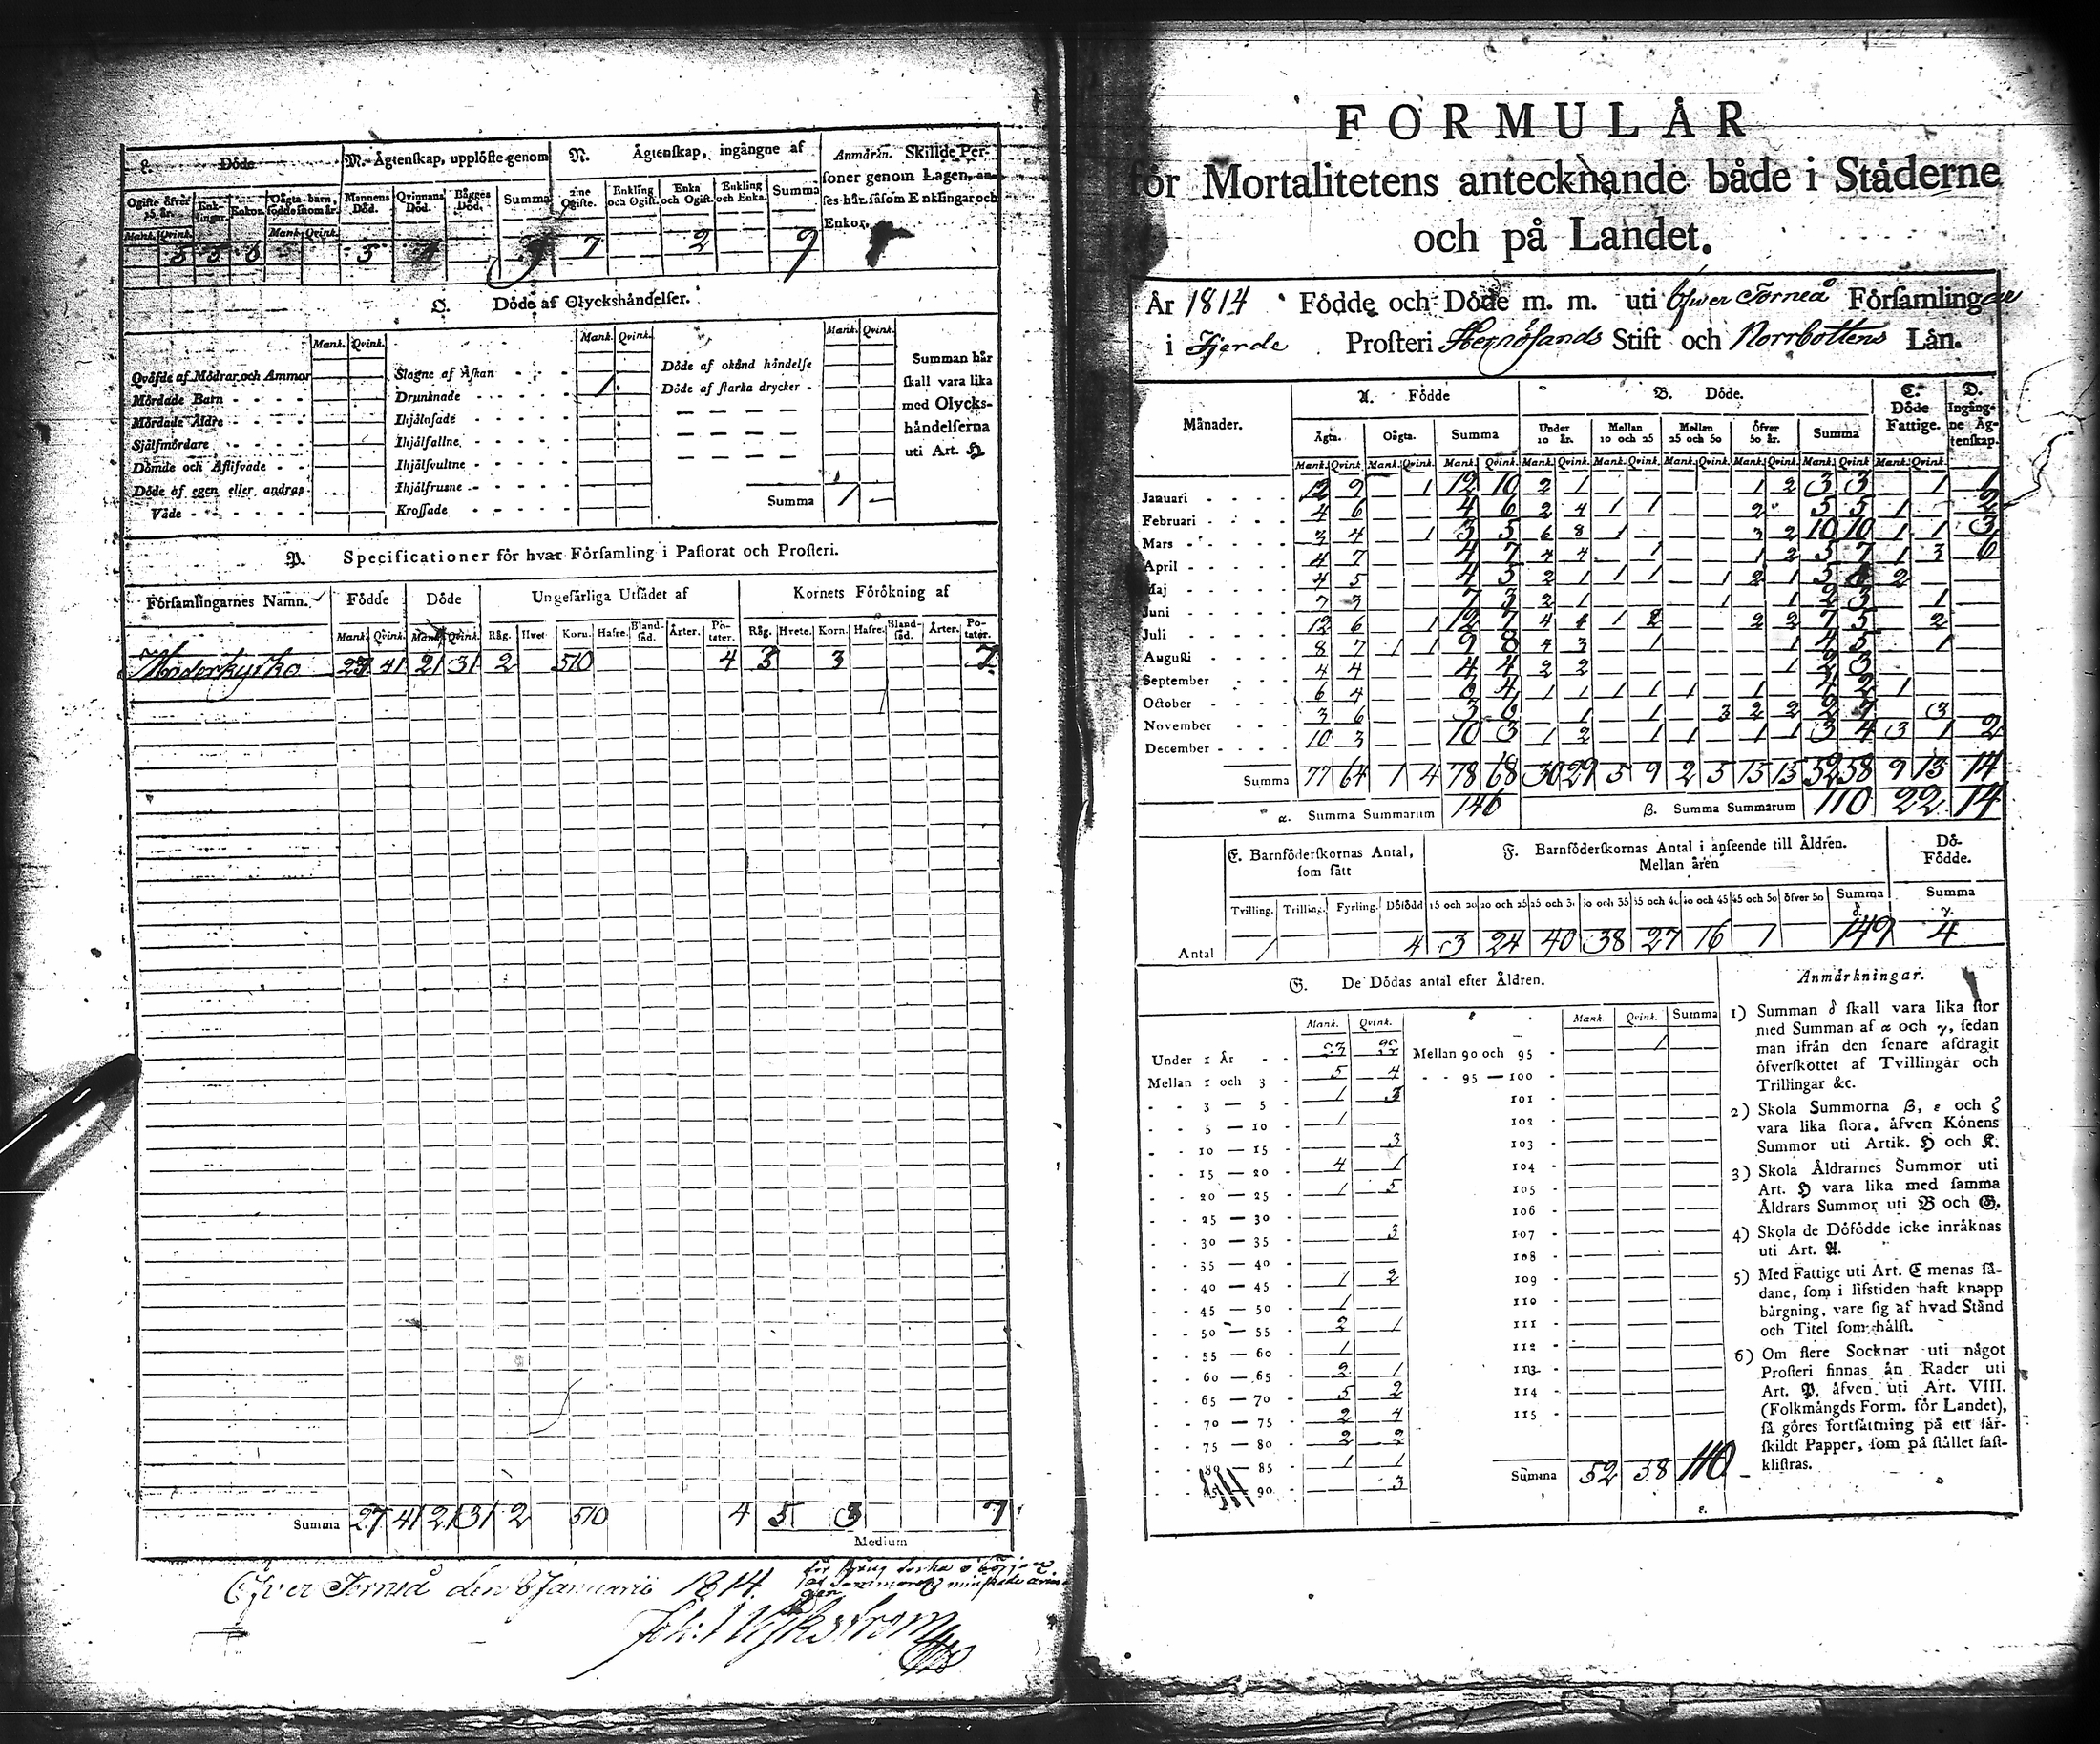 L. Döde
M. Ägtenskap, upplöste genom
N. Ägtenskap, ingångne af
Anmärkn. Skillde Personer genom Lagen, anses här såsom Enklingar och Enkor.
Ogifte öfver 15 år. Enklingar. Enkor. Oägta barn, födde inom år. Mannens Död. Qvinnans Död. Bägges Död. Summa 2:ne Ogifte. Enkling och Ogift. Enka och Ogift. Enkling och Enka. Summa
Mank. Qvink. Mank. Qvink.
5 5 6 5 7 2 9
O. Döde af Olyckshändelser.
Mank. Qvink. Mank. Qvink. Mank. Qvink.
Qväfde af Mödrar och Ammor
Mördade Barn
Mördade Äldre
Självmördare
Dömde och Aflifvade
Döde af egen eller andras
Våde
Slagne af Åskan
Drunknade 1
Ihjälosade
Ihjälfallne
Ihjälsvultne
Ihjälfrusne
Krossade
Döde af okänd händelse
Döde af starka drycker
Summa 1 —
Summan här
skall vara lika
med Olycks-
händelserna
uti Art. H
P. Specificationer för hvar Församling i Pastorat och Prosteri.
Församlingarnes Namn. Födde Döde Ungefärliga Utsädet af Kornets Förökning af
Mank. Qvink. Mank. Qvink. Råg. Hvet. Korn. Hafre. Bland-säd. Ärter. Potater. Råg. Hvete. Korn. Hafre. Bland-säd. Ärter. Potater.
Moderkyrko 27 41 21 31 2 510 4 3 3 7
Summa 27 41 21 31 2 510 4 5 3 7
Medium
Öfver Torneå den 8 Januarii 1814.
FORMULÄR
för Mortalitetens antecknande både i Städerne
och på Landet.
År 1814 Födde och Döde m. m. uti Öfver Torneå Församlingar
i Fjerde Prosteri Hernösands Stift och Norrbottens Län.
Månader. A. Födde B. Döde. C. Döde Fattige. D. Ingångne Ägtenskap.
Ägta. Oägta. Summa Under 10 år. Mellan 10 och 25 Mellan 25 och 50 Öfver 50 år. Summa
Mank. Qvink. Mank. Qvink. Mank. Qvink. Mank. Qvink. Mank. Qvink. Mank. Qvink. Mank. Qvink. Mank. Qvink. Mank. Qvink.
Januari 12 9 — 1 12 10 2 1 — — — — 1 2 3 3 — 1 1
Februari 4 6 — — 4 6 2 4 1 1 — — 2 — 5 5 1 — 2
Mars 3 4 — 1 3 5 6 8 1 — — — 3 2 10 10 1 1 3
April 4 7 — — 4 7 4 4 — 1 — — 1 2 5 7 1 3 6
Maj 4 5 — — 4 5 2 1 1 1 — 1 2 1 5 2
Juni 7 3 — — 7 3 2 1 — — — 1 — 1 2 3 — 1
Juli 12 6 — 1 12 7 4 1 2 — — 2 2 7 5 — 2
Augusti 8 7 1 1 9 8 4 3 — 1 — — — 1 4 5 — 1
September 4 4 — — 4 4 2 2 — — — — — 1 2 3
October 6 4 — — 6 4 1 1 1 1 1 — 1 — 4 2 1
November 3 6 — — 3 6 — 1 — 1 — 3 2 2 2 7 — 3
December 10 3 — — 10 3 1 2 — 1 1 — 1 1 3 4 3 1 2
Summa 77 64 1 4 78 68 30 29 5 9 2 5 15 15 52 58 9 13 14
α. Summa Summarum 146 β. Summa Summarum 110 22 14
E. Barnföderskornas Antal, som fått
F. Barnföderskornas Antal i anseende till Åldren. Mellan åren
Dö-Födde.
Tvilling. Trilling. Fyrling. Dödfödd 15 och 20 20 och 25 25 och 30 30 och 35 35 och 40 40 och 45 45 och 50 öfver 50 Summa δ. Summa γ.
Antal 1 4 3 24 40 38 27 16 1 149 4
G. De Dödas antal efter Åldren.
Mank. Qvink. Mank. Qvink. Summa
Under 1 År 23 22
Mellan 1 och 3 5 4
3 — 5 1 3
5 — 10 1
10 — 15 3
15 — 20 4 1
20 — 25 1 5
25 — 30
30 — 35 3
35 — 40
40 — 45 1 2
45 — 50 1
50 — 55 2 1
55 — 60 1
60 — 65 2 1
65 — 70 5 2
70 — 75 2 4
75 — 80 2 2
80 — 85 1 1
90 3
Mellan 90 och 95 1
95 — 100
101
102
103
104
105
106
107
108
109
110
111
112
113
114
115
Summa 52 58 110
ε.
Anmärkningar.
1) Summan δ skall vara lika stor
med Summan af α och γ, sedan
man ifrån den senare afdragit
öfverskottet af Tvillingar och
Trillingar &c.
2) Skola Summorna β, ε och ζ
vara lika stora, äfven Könens
Summor uti Artik. H och K.
3) Skola Åldrarnes Summor uti
Art. H vara lika med samma
Åldrars Summor uti B och G.
4) Skola de Döfödde icke inräknas
uti Art. A.
5) Med Fattige uti Art. C menas så-
dane, som i lifstiden haft knapp
bärgning, vare sig af hvad Stånd
och Titel som hälst.
6) Om flere Socknar uti något
Prosteri finnas än Rader uti
Art. P. äfven uti Art. VIII.
(Folkmängds Form. för Landet),
så göres fortsättning på ett sär-
skildt Papper, som på stället fast-
klistras.